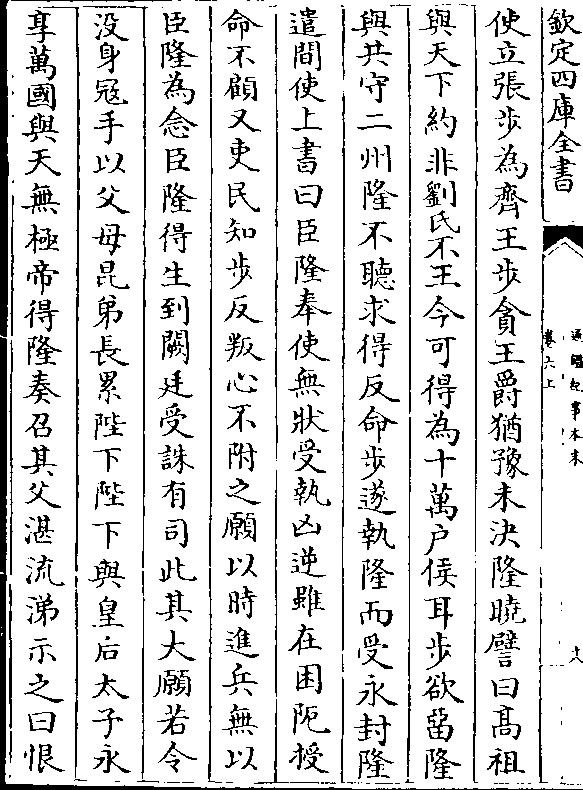 欽定四庫全書
通鑑紀事本末
卷六上
使立張步為齊王步貪王爵猶豫未決隆曉譬曰髙祖
與天下約非劉氏不王今可得為十萬户侯耳步欲留隆
與共守二州隆不聽求得反命步遂執隆而受永封隆
遣間使上書曰臣隆奉使無狀受執凶逆雖在困阨授
命不顧又吏民知步反叛心不附之願以時進兵無以
臣隆為念臣隆得生到闕廷受誅有司此其大願若令
没身冦手以父母昆弟長累陛下陛下與皇后太子永
享萬國與天無極帝得隆奏召其父湛流涕示之曰恨